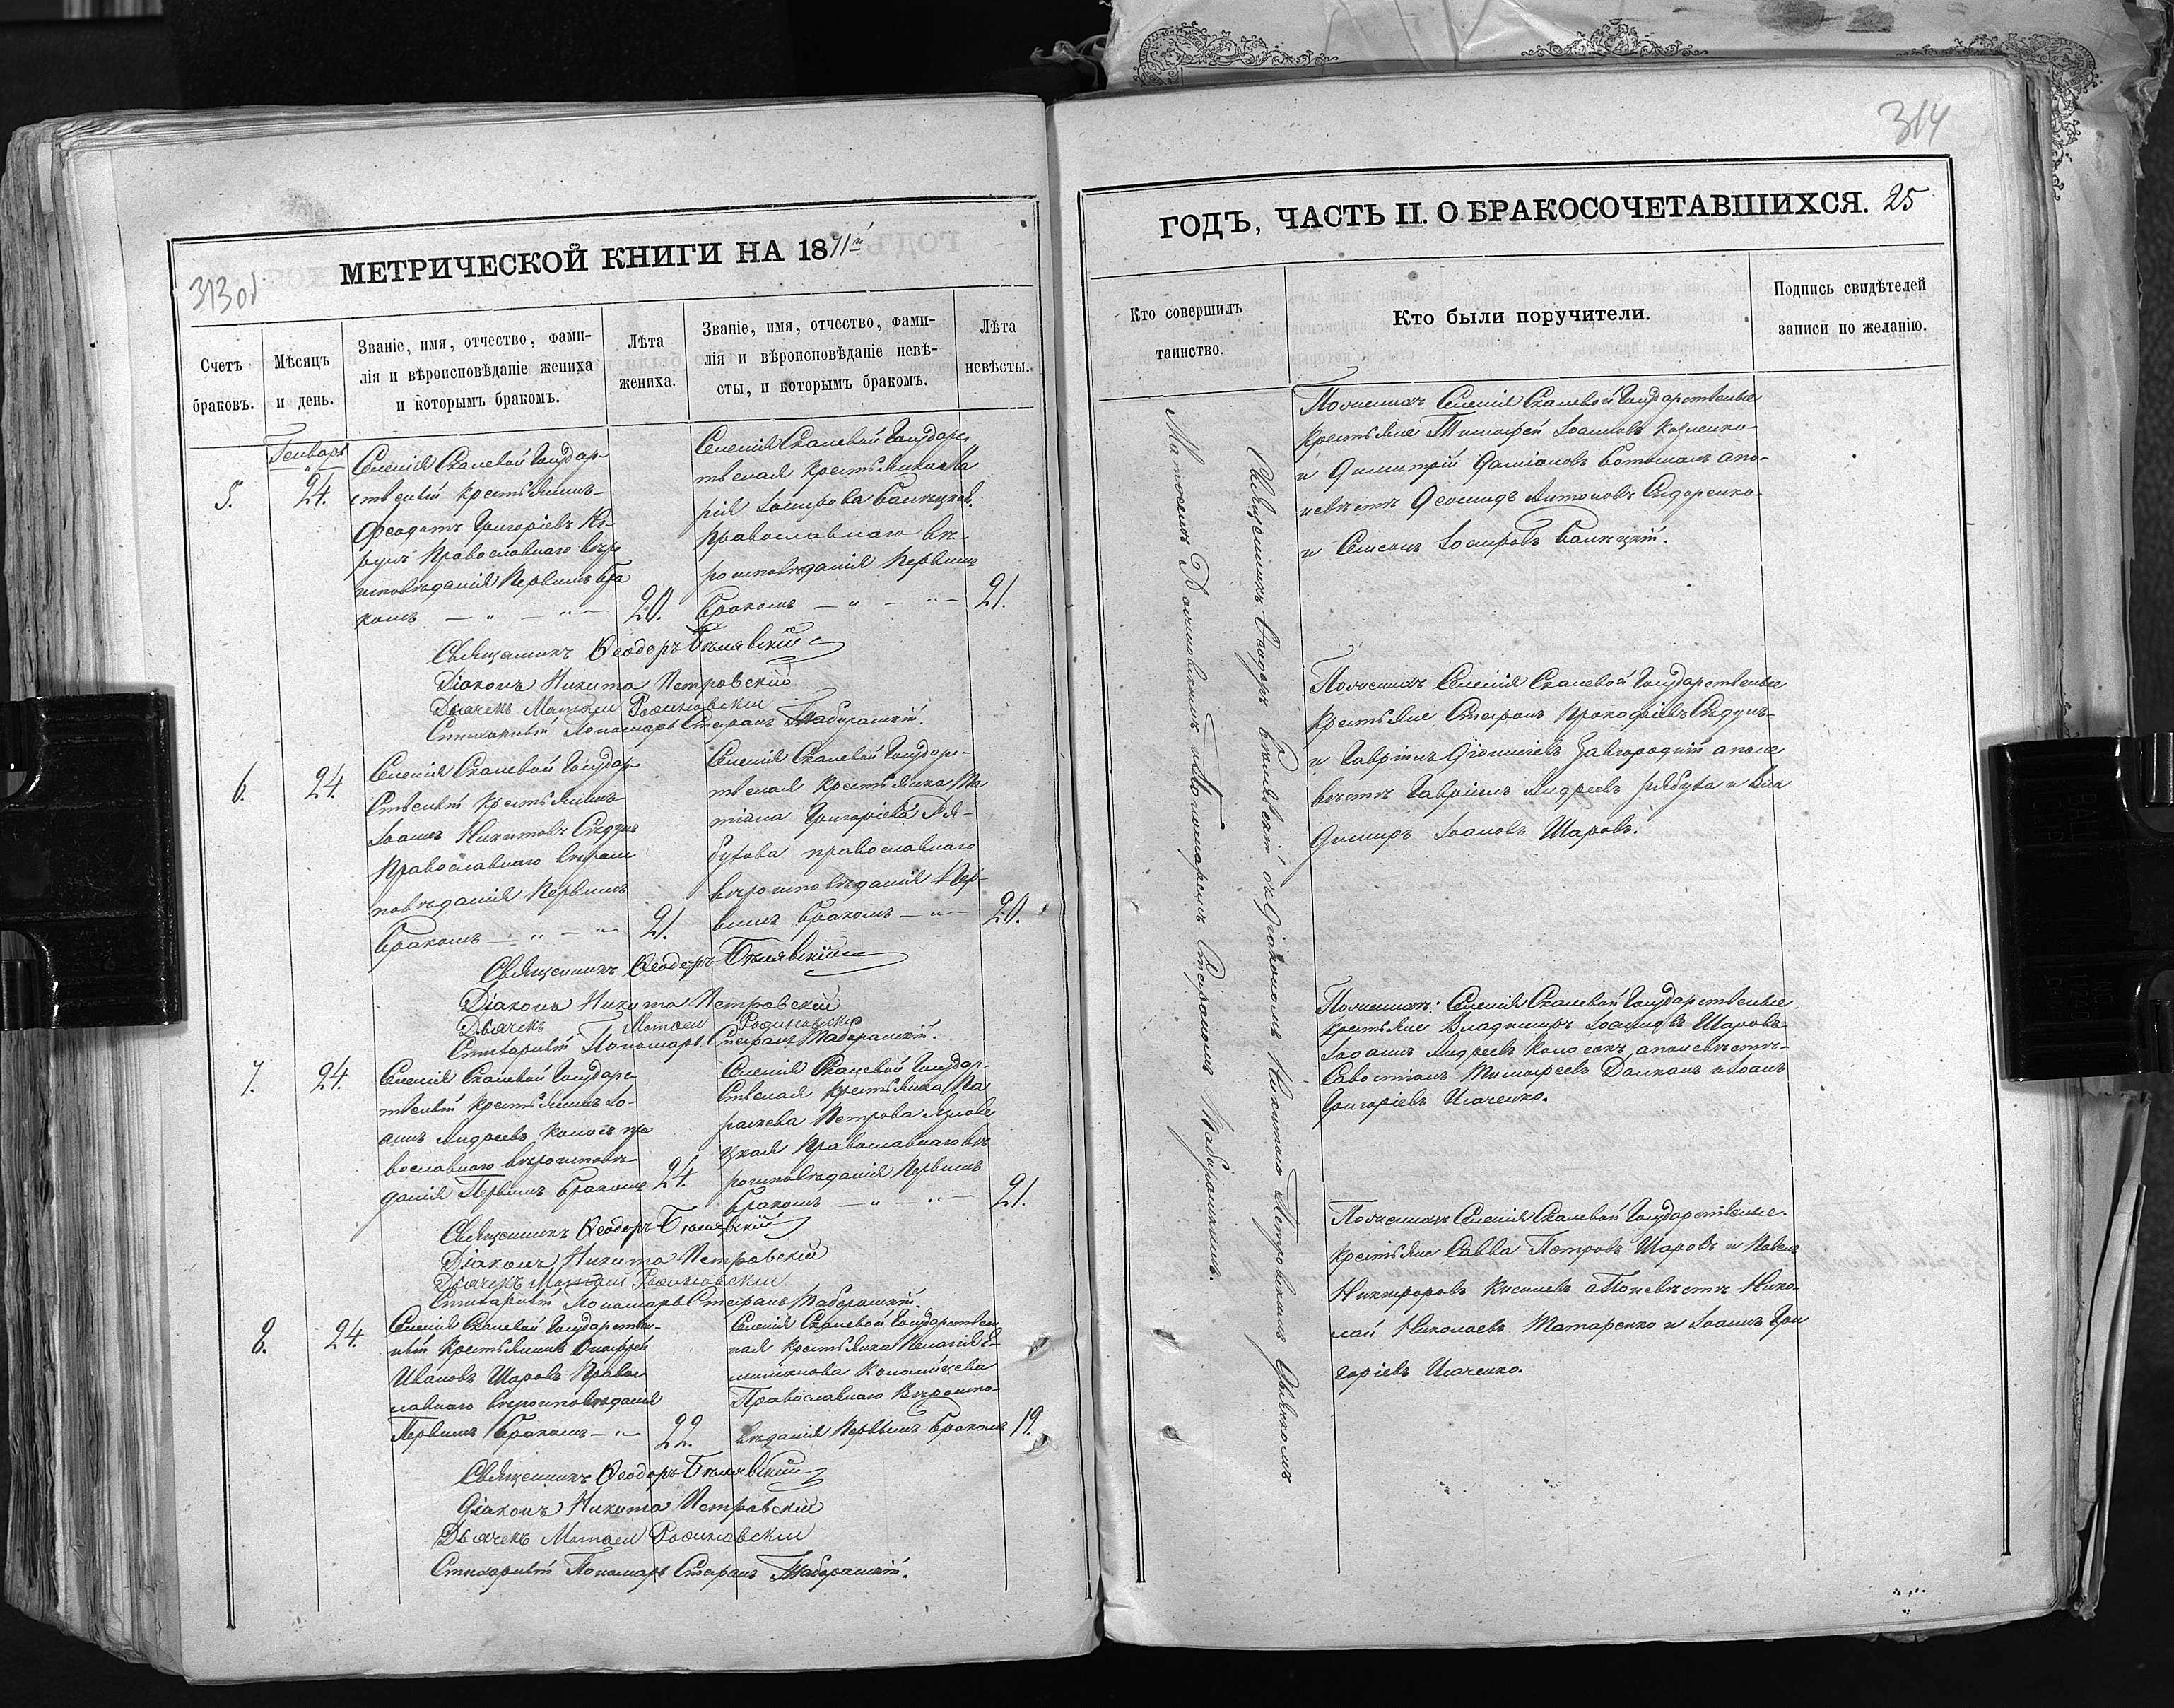 МЕТРИЧЕСКОЙ КНИГИ НА 1871й
313об
Счетъ браковъ.
Мѣсяцъ и день.
Званіе, имя, отчество, фами-
лія и вѣроисповѣданіе жениха
и которымъ бракомъ.
Лѣта жениха.
Званіе, имя, отчество, фами-
лія и вѣроисповѣданіе невѣ-
сты, и которымъ бракомъ.
Лѣта невѣсты.
Генварь
5.
24.
Селенія Скалевой Государ-
ственный крестьянинъ
Феодотъ Григоріевъ
Православнаго вѣро
исповѣданія Первымъ бра
комъ
20.
Селенія Скалевой Государс
твеная крестьянка Ма
рія Іосифова
Православнаго вѣ-
роисповѣданія Первымъ
бракомъ
21.
Священникъ Ѳеодоръ Бѣлявскій
Діаконъ Никита Петровскій
Дьячекъ Матѳей
Стихарный Пономарь Стефанъ
6.
24.
Селенія Скалевой Государ
ственный крестьянинъ
Іоаннъ Никитовъ
Православнаго вѣроис
повѣданія Первымъ
бракомъ
21.
Селенія Скалевой Государс
твеная крестьянка Та
тіана Григоріева Ря-
бухова православнаго
вѣроисповѣданія Пер-
вымъ бракомъ
20.
Священникъ Ѳеодоръ Бѣлявскій
Діаконъ Никита Петровскій
Дьячекъ Матѳей
Стихарный Пономарь Стефанъ
7.
24.
Селенія Скалевой Государс
твеный крестьянинъ Іо-
аннъ Андреевъ Колосъ пра
вославнаго вѣроисповѣ
данія Первымъ бракомъ
24.
Селенія Скалевой Государ-
ственая крестьянка Па
раскева Петрова
Православнаго вѣ
роисповѣданія Первымъ
бракомъ
21.
Священникъ Ѳеодоръ Бѣлявскій
Діаконъ Никита Петровскій
Дьячекъ Матѳей
Стихарный Пономарь Стефанъ
8.
24.
Селенія Скалевой Государствен-
ный крестьянинъ
Ивановъ Шаровъ Правос
лавнаго вѣроисповѣданія
Первымъ бракомъ
22.
Селенія Скалевой Государствен
ная крестьянка Пелагія
Коломійцева
Православнаго Вѣроиспо-
вѣданія Первымъ бракомъ
19.
Священникъ Ѳеодоръ Бѣлявскій
Діаконъ Никита Петровскій
Дьячекъ Матѳей
Стихарный Пономарь Стефанъ
314
ГОДЪ, ЧАСТЬ II. О БРАКОСОЧЕТАВШИХСЯ. 25
Кто совершилъ
таинство.
Кто были поручители.
Подпись свидѣтелей
записи по желанію.
Священникъ Ѳеодоръ Бѣлявскій съ Діакономъ Никитою Петровскимъ Дьячкомъ
Матѳеемъ и Пономаремъ Стефаномъ
По женихѣ Селенія Скалевой Государственые
крестьяне Тимофей Іоанновъ Козленко
и Димитрій Даміановъ а по
невѣстѣ Леонидъ Антоновъ Сидоренко
и Іосифовъ
По женихѣ Селенія Скалевой Государственые
крестьяне Стефанъ Прокофіевъ
и Гавріилъ Діонисіевъ Завгородній а по не
вѣстѣ Гавріилъ Андреевъ Рябуха и Вла
димиръ Іоановъ Шаровъ.
По женихѣ: Селенія Скалевой Государственые
крестьяне Владимиръ Іоановъ Шаровъ
Іоаннъ Андреевъ а по невѣстѣ
Савостіанъ Тимофеевъ и Іоанъ
Григоріевъ Исаченко.
По женихѣ Селенія Скалевой Государственые.
крестьяне Савва Петровъ Шаровъ и Павелъ
Никифоровъ Киселевъ а По невѣстѣ Нико-
лай Николаевъ Татаренко и Іоаннъ Гри
горіевъ Исаченко.